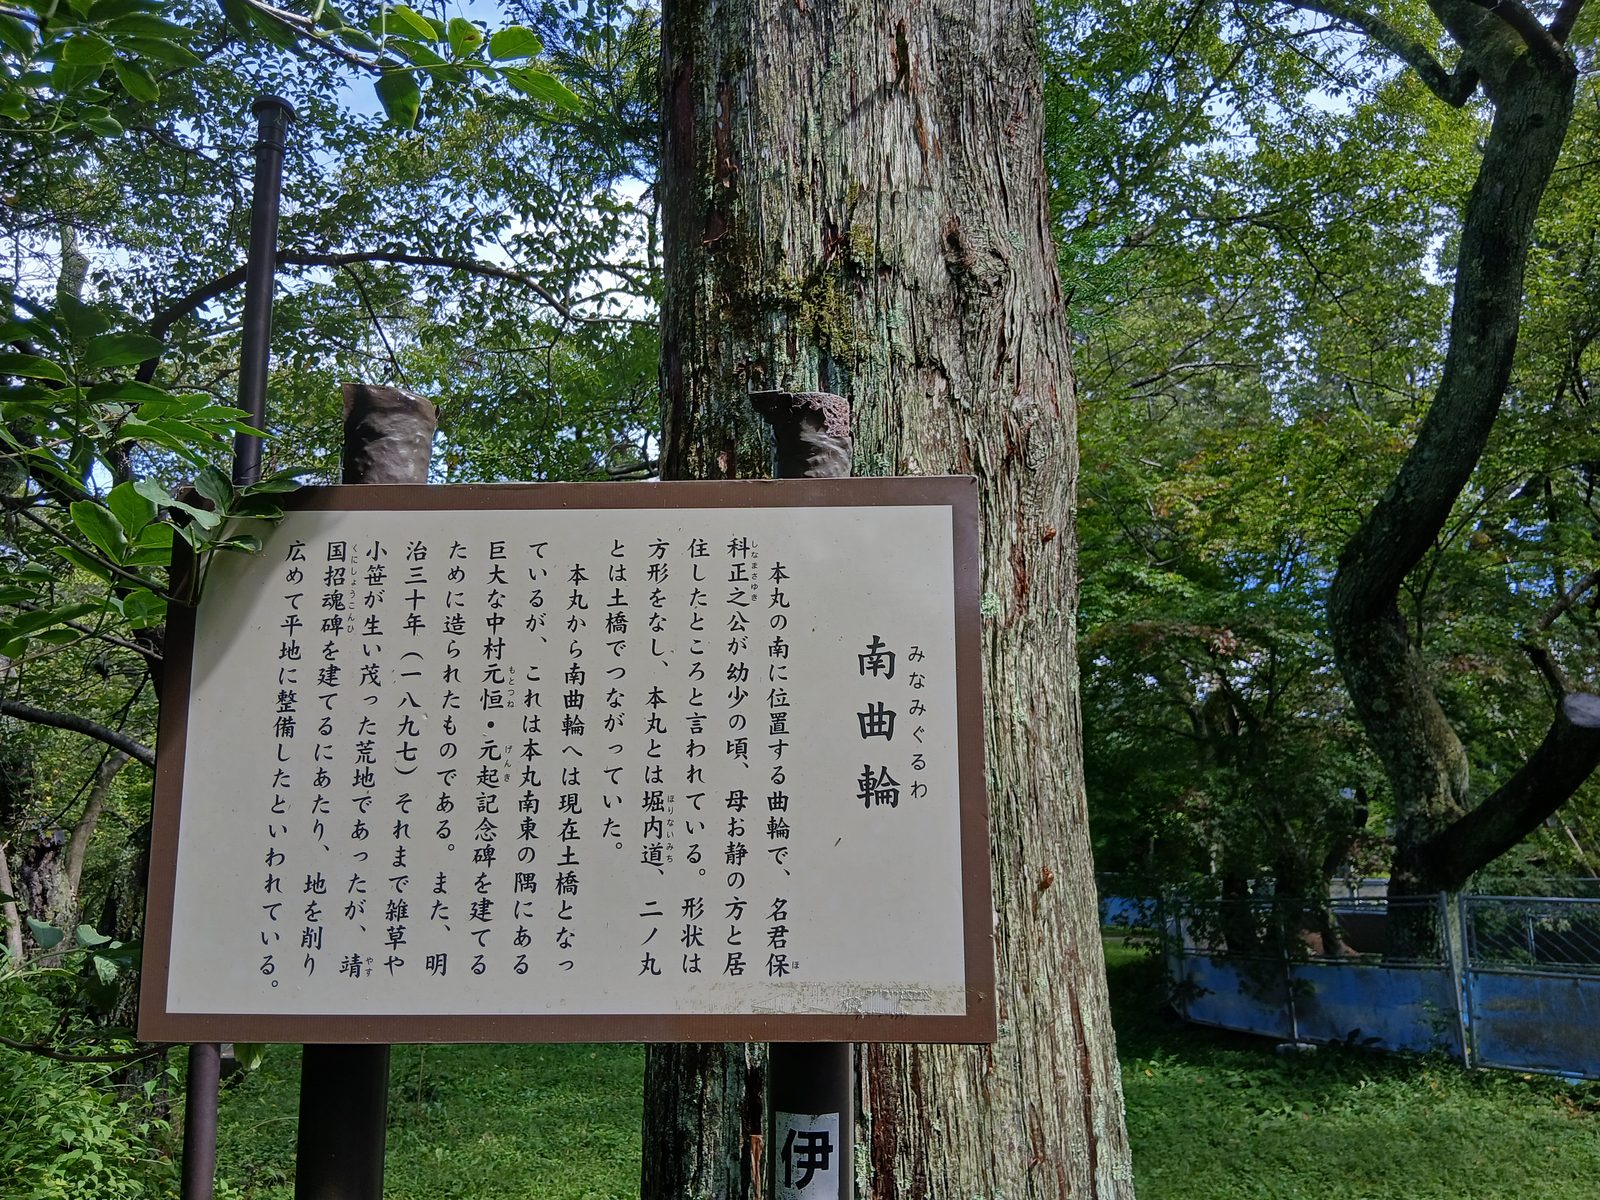 南曲輪
みなみぐるわ
本丸の南に位置する曲輪で、名君保
ほ
科正之公が幼少の頃、母お静の方と居
しなまさゆき
住したところと言われている。形状は
方形をなし、本丸とは堀内道、二ノ丸
ほりないみち
とは土橋でつながっていた。
本丸から南曲輪へは現在土橋となっ
ているが、これは本丸南東の隅にある
巨大な中村元恒・元起記念碑を建てる
もとつね
げんき
ために造られたものである。また、明
治三十年（一八九七）それまで雑草や
小笹が生い茂った荒地であったが、靖
やす
国招魂碑を建てるにあたり、地を削り
くにしょうこんひ
広めて平地に整備したといわれている。
伊